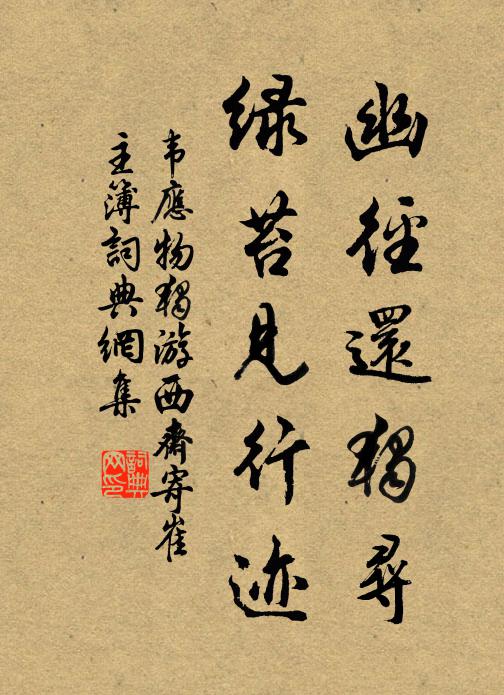 幽徑還獨尋
緑苔見行迹
韦應物獨游西齋寄崔
主簿詞典網集
詞典
网印